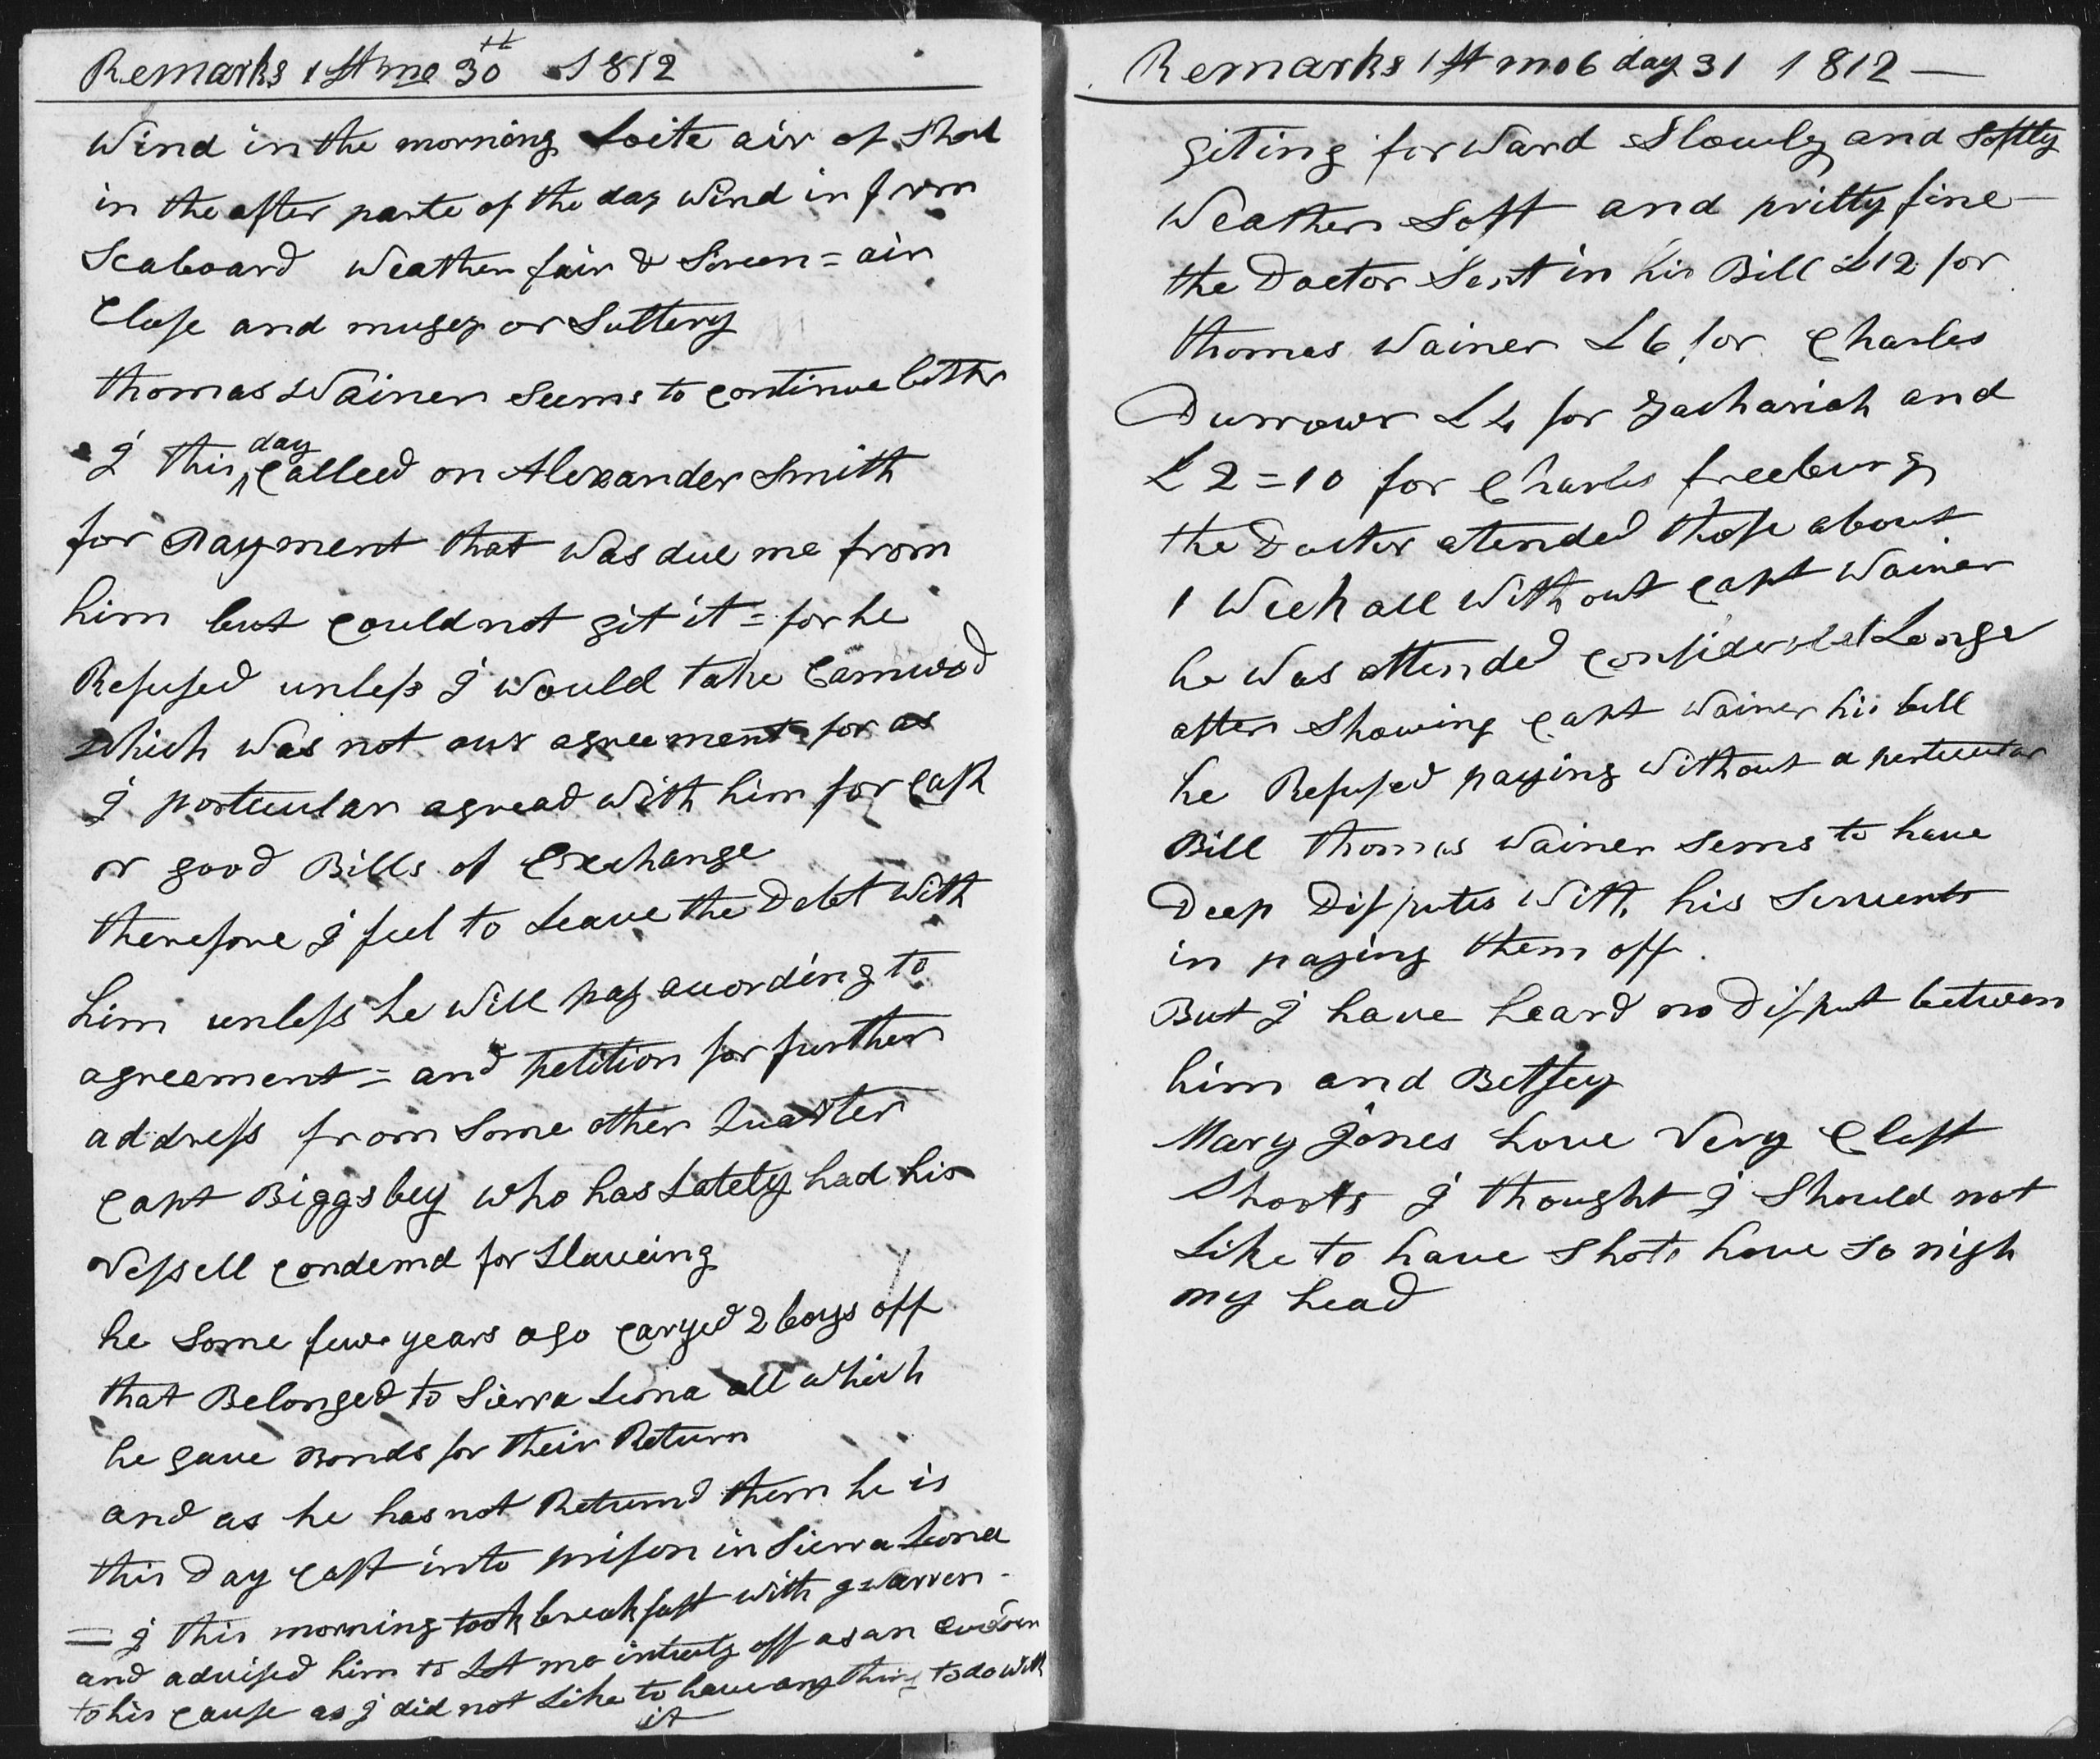 Remarks 1st mo 30th 1812
Wind in the morning Loite air of Shore
in the after parte of the day Wind in from
Seaboard Weather fair & Sereen = air
Close and mugey or Suttery
thomas Wainer Seems to Continue better
I this day Calleed on Alexander Smith
for Payment that Was due me from
him but Could not git it = for he
Refused unless I Would take Camwood
Which Was not our agreement for as
I porticular agread With him for Cash
or good Bills of Exchange
therefore I feel to Leave the Debt With
him unless he Will pay according to
agreement = and petition for further
address from Some other Quarter
Capt Biggsbey Who has Lately had his
Vessell Condemd for Slaveing
he Some few years ago Caryed 2 boys off
that Belonged to Sierra Leona all which
he gave Bonds for their Return
and as he has not Returnd them he is
this Day Cast into prison in Sierra Leona
= I this morning took breakfast With g Warren
and advised him to Let me intirely off as an
to his Cause as I did not Like to have any thing to do With
it
Remarks 1st mo 6 day 31 1812 —
giting forWard Slowly and Softly
Weather Soft and pritty fine
the Doctor Sent in his Bill £12 for
thomas Wainer £6 for Charles
Durrowr £4 for Zachariah and
£2=10 for Charles freeburg
the Docter atended those about
1 Week all With out Capt Wainer
he Was attended Considerabel Longe
after Showing Capt Wainer his bill
he Refused paying Without a perticular
Bill thomas Wainer Sems to have
Deep Disputes With his Servents
in paying them off.
But I have heard no Disput between
him and Betsey
Mary Jones hove Very Clost
Shoots I thought I Should not
Like to have Shots hove So nigh
my head